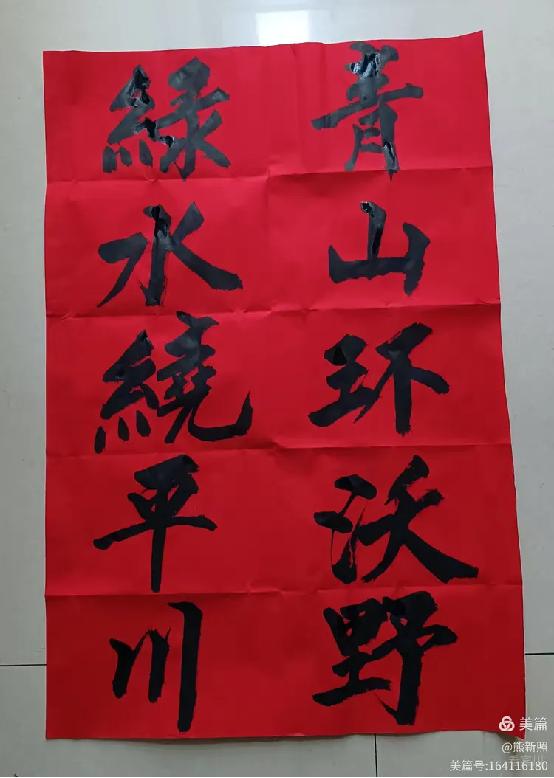 青山环沃野
綠水繞平川
美篇
@熊新照
美篇号:164116180